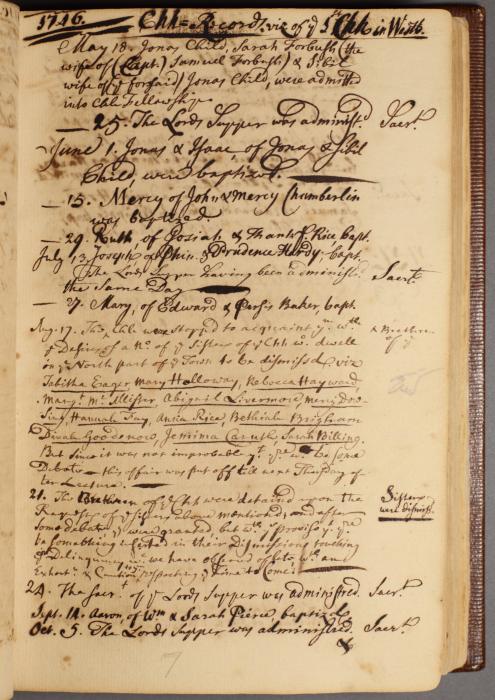 1746. Chh = Records, viz of yͤ 1st Chh in Westb.
May 18. Jonas Child, Sarah Forbush (the
wife of (Capt) Samuel Forbush) & Sibil
wife of (yͤ forsaid) Jonas Child, were admitted
into Chh Fellowship.
— 25. The Lords Supper was administ. Sacrt.
June 1. Jonas & Isaac, of Jonas & Sibil
Child, were baptiz'd.
— 15. Mercy of John & Mercy Chamberlin
was baptized.
— 29. Ruth, of Josiah & Thankfl Rice, bapt.
July 13 Joseph, of Phin. & Prudence Hardy, bapt.
The Lords Supper having been administd. Sacrt.
the Same Day
— 27. Mary, of Edward & Persis Baker, bapt.
Aug. 17. The Chh were stopped to acquaint ym wth & Brethren
yͤ Desires of a No. of yͤ Sisters of yͤ Chh wo. dwell of yͤ
on yͤ North part of yͤ Town to be dismissd, viz
Tabitha Eager, Mary Holloway, Rebecca Hayward,
Margt. Mc.Allister Abigail Livermore, Mercy
Hannah Fay, Anna Rice, Bethiah Brigham
Dinah Goodenow, Jemima Caruth, Sarah Billing.
But since it was not improbable yt. yre wd. be some
Debate — this affair was put off till next Thursday after
Lecture.
21. The Brethren of yͤ Chh were detained upon the Sisters
Request of yͤ Sisters above mentiond; and after were dismissd.
some debate yͤ was granted but wth yͤ proviso yt yre
be something inserted in their Dismissions touching
yͤ Delinquency we have offered of late, wth an
Exhortn. & Caution respecting yͤ Time to Come.
24. The Sacr. of yͤ Lords Supper was administred. Sacrt.
Sept. 14. Aaron, of Wm & Sarah Pierce, baptized.
Oct. 5. The Lords Supper was administred. Sacrt.